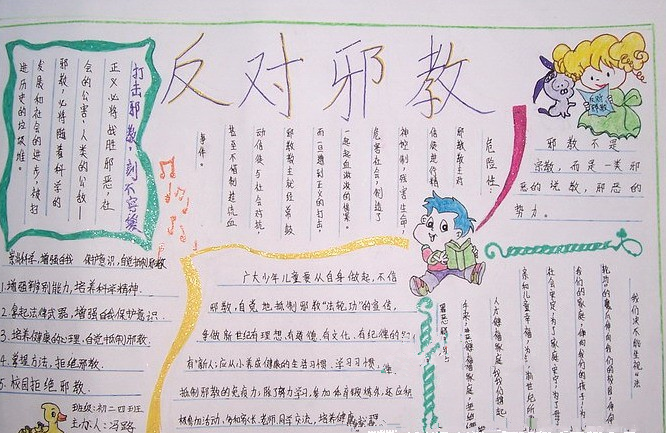 反对邪教
打击邪教，刻不容缓
正义必将战胜邪恶，社
会的公害、人类的公敌——
邪教，必将随着科学的
发展和社会的进步，被扫
进历史的垃圾堆。
危险性：
邪教教主对
信徒进行精
神控制，残害生命，
危害社会，制造了
一起起血淋淋的惨案。
而一旦遭到正义的打击，
邪教教主就经常鼓
动信徒与社会对抗，
甚至不惜制造流血
事件。
反对
邪教
邪教不是
宗教，而是一类邪
恶的说教，邪恶的
势力。
崇尚科学，增强自我 保护意识，自觉抵制邪教
1.增强辨别能力，培养科学精神。
2.拿起法律武器，增强自我保护意识。
3.培养健康的心理，自觉抵制邪教。
4.掌握方法，拒绝邪教。
5.校园拒绝邪教。
班级：初二四班
主办人：冯路
广大少年儿童要从自身做起，不信
邪教，自觉地抵制邪教“法轮功”的宣传，
争做新世纪有理想、有道德、有文化、有纪律的“四
有”新人；应从小养成健康的生活习惯、学习习惯，
抵制邪教的免疫力；除了努力学习，参加体育锻炼外，还应积
极参加活动，多和家长、老师、同学交流，培养健康心理。
我们决不能坐视“法
我们的家庭，伸向我们的孩子，为
社会安定，为了家庭安宁，为了母
亲和儿童幸福，为了